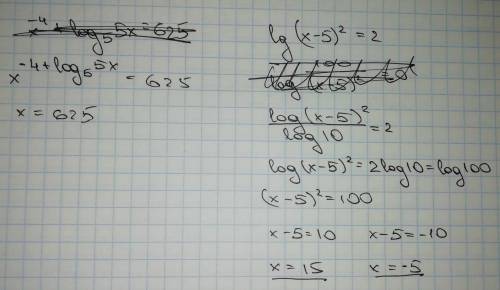 x^(-4+log_5 5x) = 625
x^(-4+log_5 5x) = 625
x = 625
lg(x-5)² = 2
log(x-5)² / log 10 = 2
log(x-5)² = 2log10 = log100
(x-5)² = 100
x-5=10 x-5=-10
x = 15 x = -5